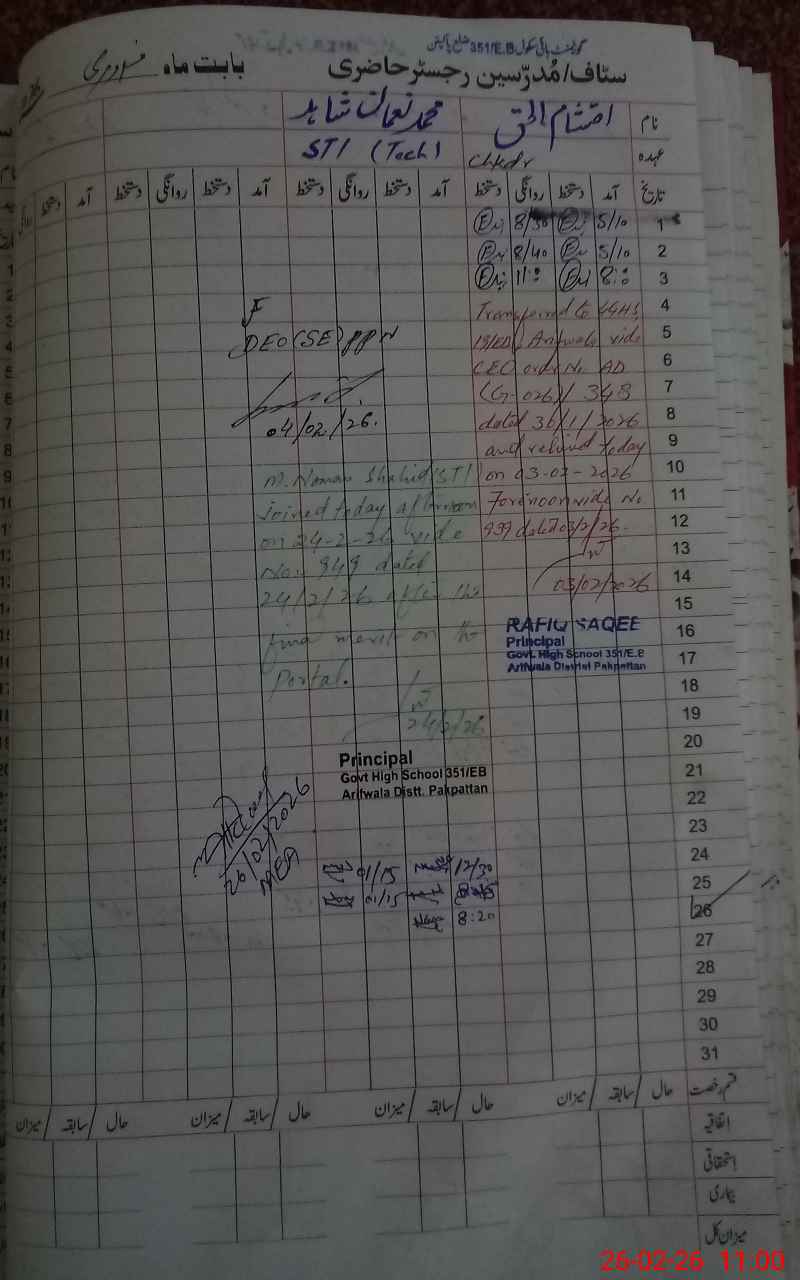 گورنمنٹ ہائی سکول 351/E.B ضلع پاکپتن
سٹاف/مُدرّسین رجسٹر حاضری بابت ماہ فروری
نام احتشام الحق محمد نعمان شاہد
عہدہ Chkdr STI (Tech)
تاریخ آمد دستخط روانگی دستخط آمد دستخط روانگی دستخط آمد دستخط روانگی دستخط آمد دستخط
1 5/10 8/30
2 5/10 8/40
3 8:0 11:0
4
5
6
7
8
9
10
11
12
13
14
15
16
17
18
19
20
21
22
23
24
25 12/30 01/15
26 01/15
8:20
27
28
29
30
31
Transferred to GHS
Arifwala vide
CEO order No AD
(G-026)/348
dated 30/1/2026
and relived today
on 03-02-2026
Forenoon vide No.
939 dated 03/2/26.
03/02/2026
RAFIQ SAQEE
Principal
Govt. High School 351/E.B
Arifwala District Pakpattan
DEO(SE)PPN
04/02/26.
M. Noman Shahid STI
joined today afternoon
on 24-2-26 vide
No. 949 dated
24/2/26 after the
final merit on the
Portal.
24/2/26
Principal
Govt High School 351/EB
Arifwala Distt. Pakpattan
26/02/2026
MEA
قسم رخصت حال / سابقہ / میزان حال / سابقہ / میزان حال / سابقہ / میزان حال / سابقہ / میزان
اتفاقیہ
استحقاقی
بیماری
میزان کل
26-02-26 11:00